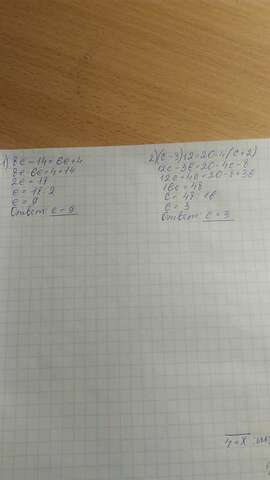 1) 8c-14=6c+4
8c-6c=4+14
2c=18
c=18:2
c=9
Ответ: c=9
2) (c-3)12=20-4(c+2)
12c-36=20-4c-8
12c+4c=20-8+36
16c=48
c=48:16
c=3
Ответ: c=3